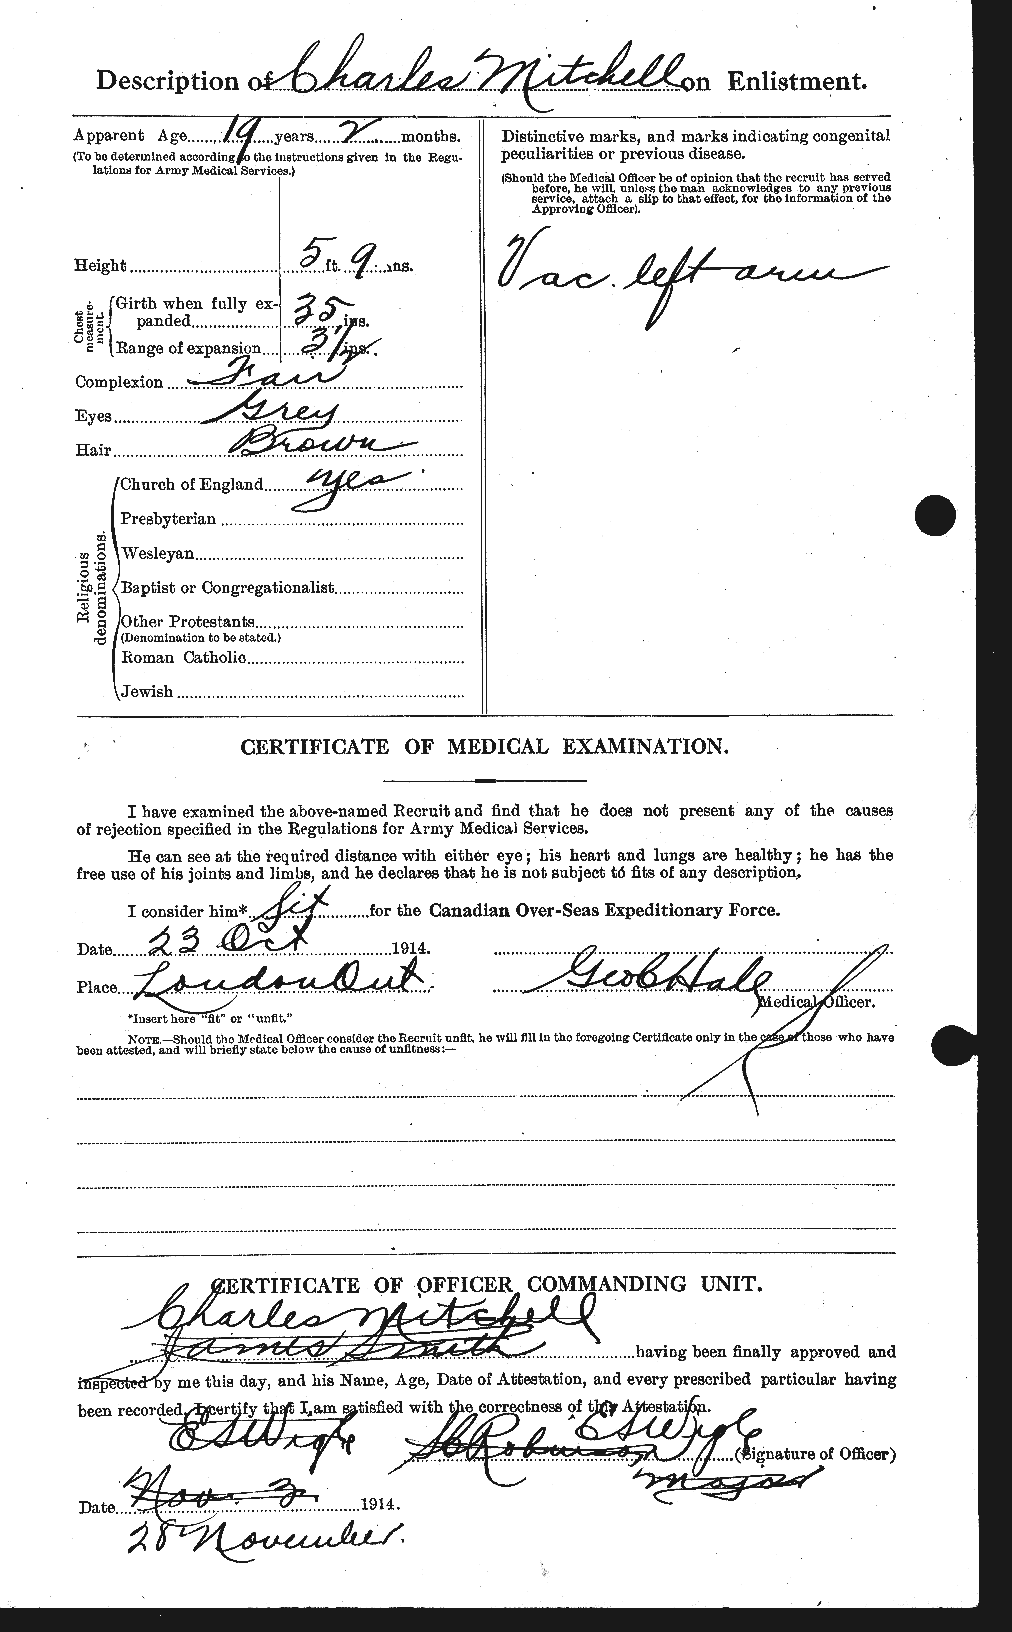 Description of Charles Mitchell on Enlistment.
Apparent Age 19 years 2 months.
(To be determined according to the instructions given in the Regu-
lations for Army Medical Services.)
Height 5 ft. 9 ins.
Chest measure-ment.
Girth when fully ex-
panded 35 ins.
Range of expansion 3½ ins.
Complexion Fair
Eyes Grey
Hair Brown
Religious denominations.
Church of England yes
Presbyterian
Wesleyan
Baptist or Congregationalist
Other Protestants
(Denomination to be stated.)
Roman Catholic
Jewish
Distinctive marks, and marks indicating congenital
peculiarities or previous disease.
(Should the Medical Officer be of opinion that the recruit has served
before, he will, unless the man acknowledges to any previous
service, attach a slip to that effect, for the information of the
Approving Officer).
Vac. left arm
CERTIFICATE OF MEDICAL EXAMINATION.
I have examined the above-named Recruit and find that he does not present any of the causes
of rejection specified in the Regulations for Army Medical Services.
He can see at the required distance with either eye; his heart and lungs are healthy; he has the
free use of his joints and limbs, and he declares that he is not subject to fits of any description.
I consider him* fit for the Canadian Over-Seas Expeditionary Force.
Date 23 Oct 1914.
Place London Ont. Geo C Hale
Medical Officer.
*Insert here "fit" or "unfit."
NOTE.—Should the Medical Officer consider the Recruit unfit, he will fill in the foregoing Certificate only in the case of those who have
been attested, and will briefly state below the cause of unfitness:—
CERTIFICATE OF OFFICER COMMANDING UNIT.
Charles Mitchell
James Smith having been finally approved and
inspected by me this day, and his Name, Age, Date of Attestation, and every prescribed particular having
been recorded, I certify that I am satisfied with the correctness of this Attestation.
ESWigle Robinson ESWigle (Signature of Officer)
Major
Date Nov. 2 1914.
28 November.